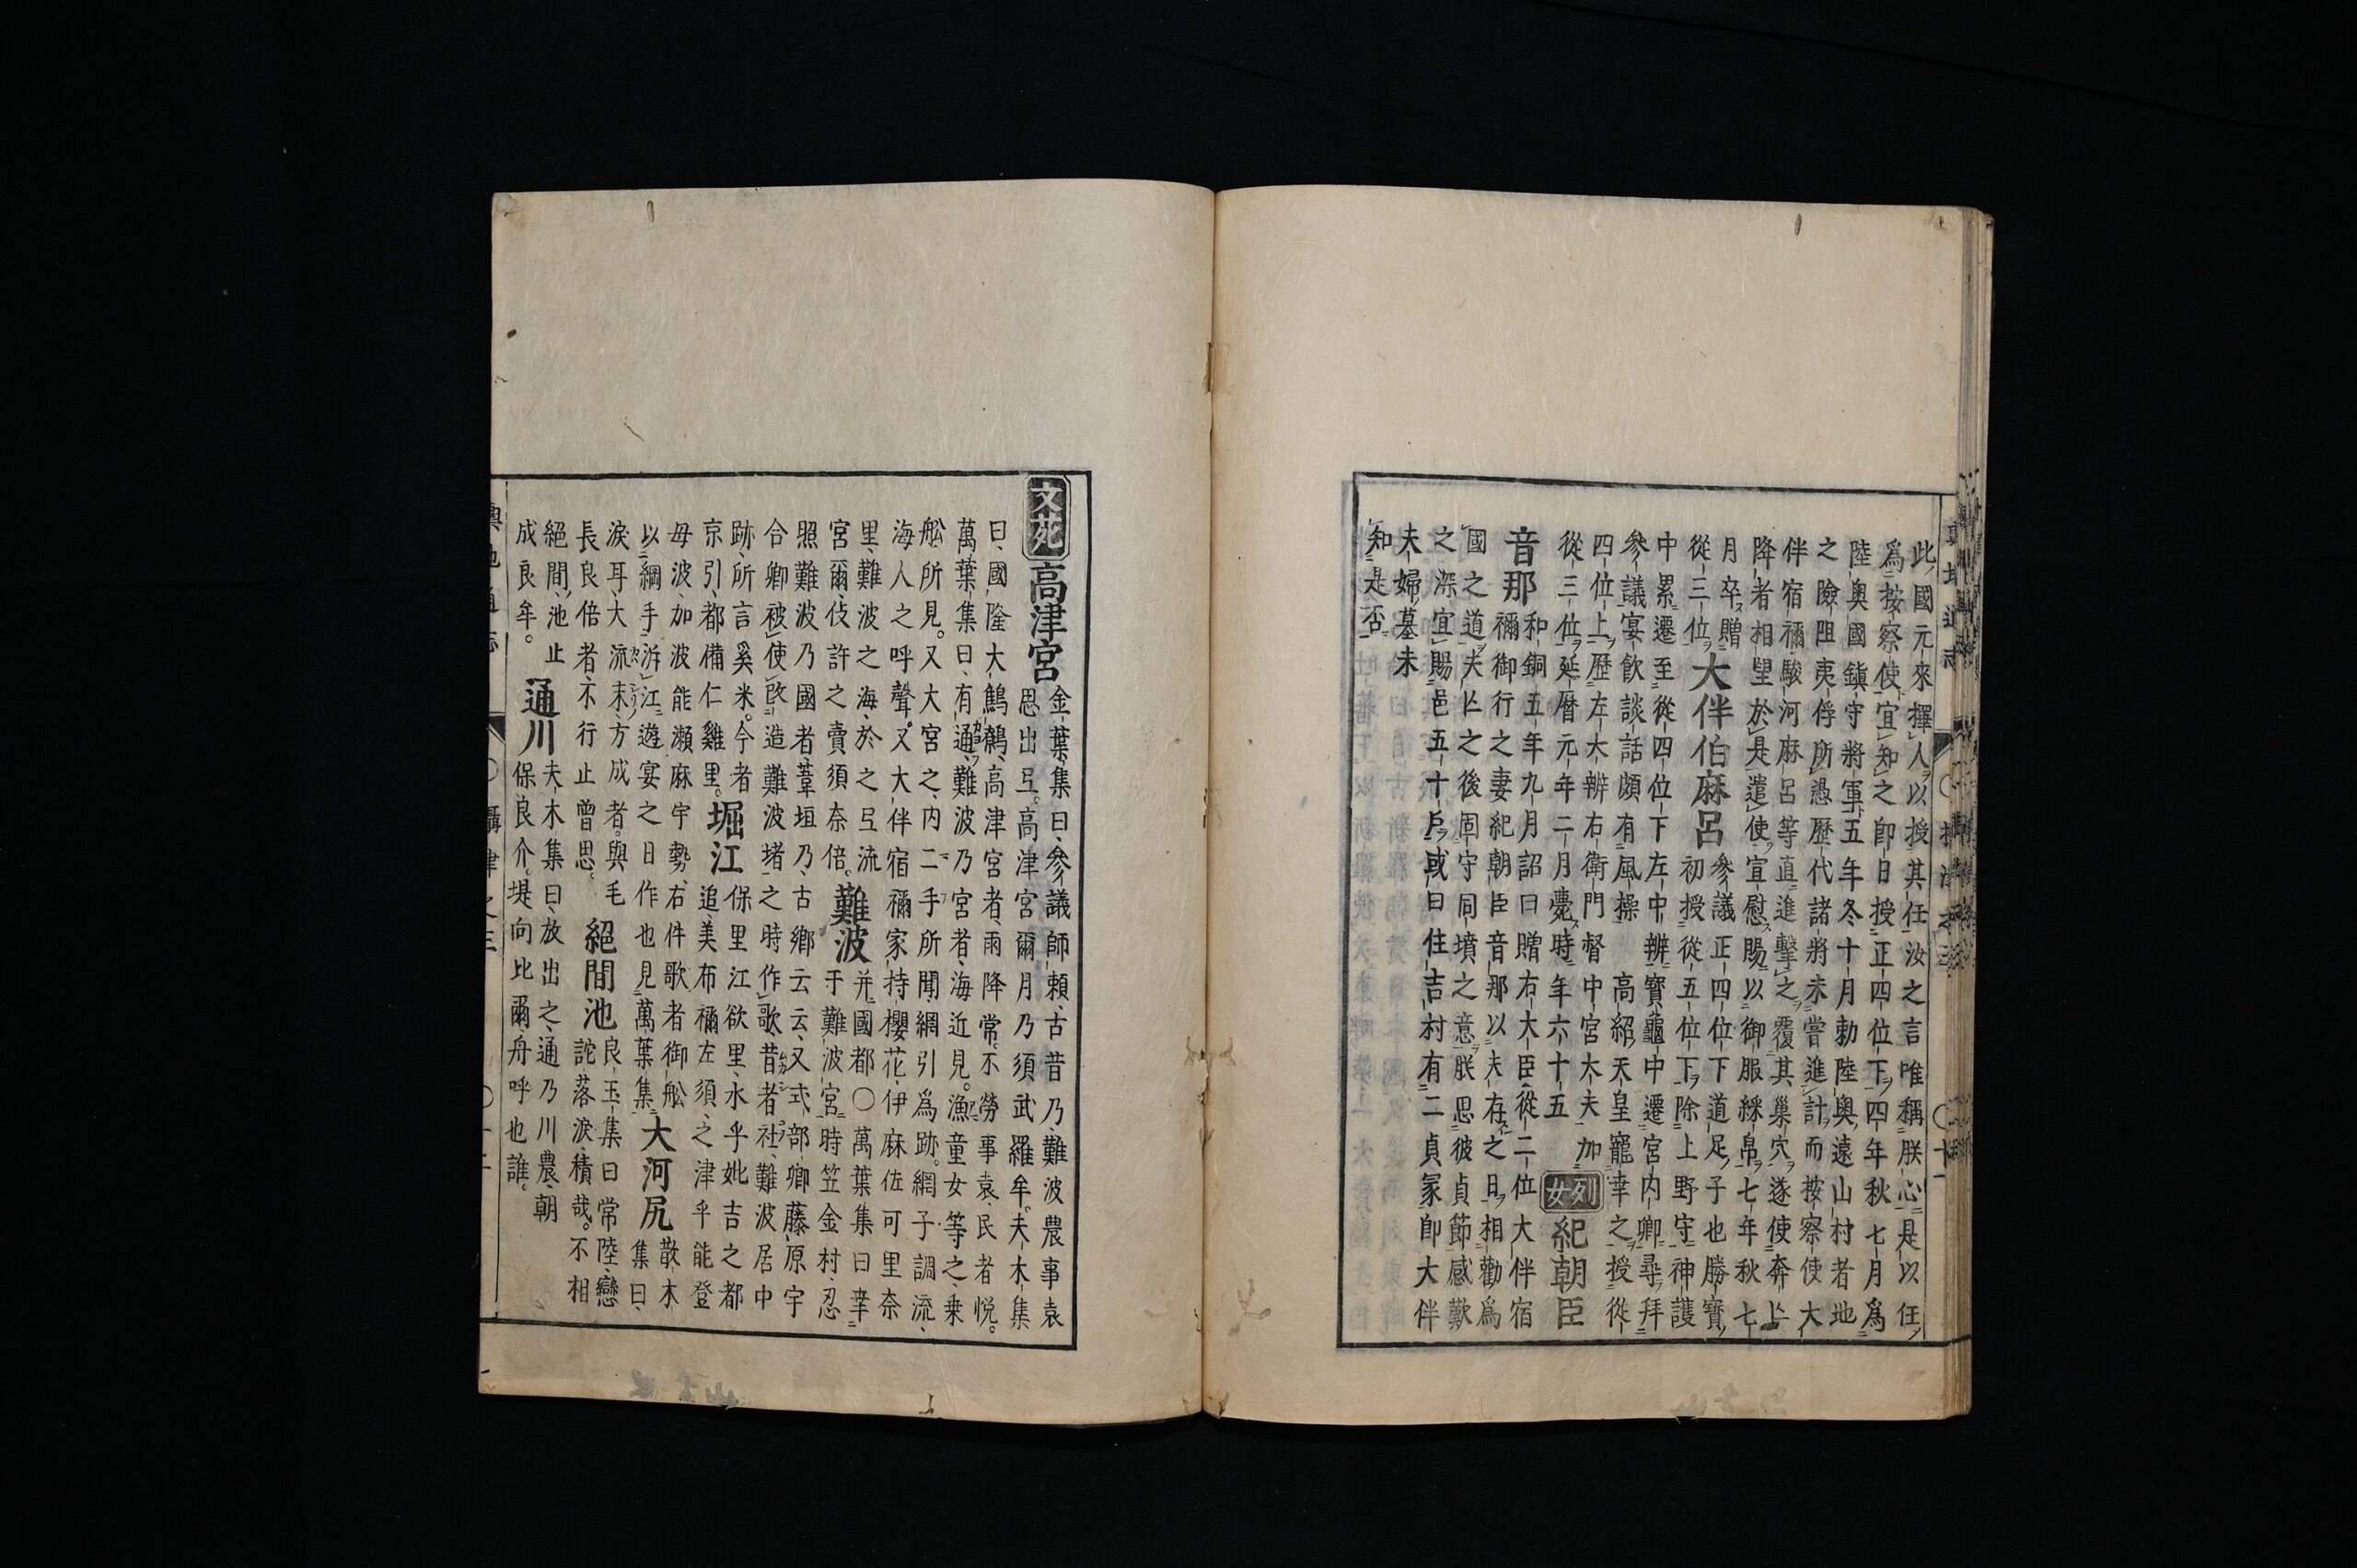 此國元來擇人以授其任汝之言唯稱朕心是以任
爲按察使宜知之卽日授正四位下四年秋七月爲
陸奧國鎭守將軍五年冬十月勅陸奧遠山村者地
之險阻夷俘所憑歷代諸將未嘗進計而按察使大
伴宿禰駿河麻呂等直進擊之覆其巢穴遂使奔亡
降者相望於是遣使宣慰賜以御服綵帛七年秋七
月卒贈從三位
大伴伯麻呂
參議正四位下道足子也勝寶
初授從五位下除上野守神護
中累遷至從四位下左中辨寶龜中遷宮内卿尋拜
參議宴飮談話頗有風操高紹天皇寵幸之授從
四位上歷左大辨右衛門督中宮大夫加
從三位延曆元年二月薨時年六十五
列女
紀朝臣
音那
和銅五年九月詔曰贈右大臣從二位大伴宿
禰御行之妻紀朝臣音那以夫存之日相勸爲
國之道夫亡之後固守同墳之意朕思彼貞節感歎
之深宜賜邑五十戶或曰住吉村有二貞冢卽大伴
夫婦墓未
知是否
文苑
高津宮
金葉集曰參議師賴古昔乃難波農事袁
思出弖高津宮爾月乃須武羅牟夫木集
曰國隆大鷦鷯高津宮者雨降常不勞事袁民者悅
萬葉集曰有通難波乃宮者海近見漁童女等之乘
舩所見又大宮之内二手所聞網引爲跡網子調流
海人之呼聲又大伴宿禰家持櫻花伊麻佐可里奈
里難波之海於之弖流
宮爾伎許之賣須奈倍
難波
幷國都○萬葉集曰幸
于難波宮時笠金村忍
照難波乃國者葦垣乃古鄉云云又式部卿藤原宇
合卿被使改造難波堵之時作歌昔者社難波居中
跡所言奚米今者
京引都備仁雞里
堀江
保里江欲里水乎妣吉之都
追美布禰左須之津乎能登
母波加波能瀨麻宇勢右件歌者御舩
以綱手泝江遊宴之日作也見萬葉集
大河尻
散木
集曰
淚耳大流末方成者與毛
長良倍者不行止曾思
絕間池
良玉集曰常陸戀
詑落淚積哉不相
絕間池止
成良牟
通川
夫木集曰放出之通乃川農朝
保良介堤向比爾舟呼也誰